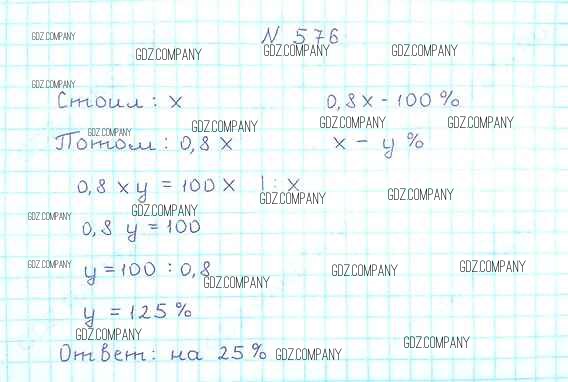 N 576
Стоил: x 0,8x - 100%
Потом: 0,8x x - y%
0,8xy = 100x |: x
0,8 y = 100
y = 100 : 0,8
y = 125%
Ответ: на 25%
GDZ.COMPANY GDZ.COMPANY GDZ.COMPANY GDZ.COMPANY
GDZ.COMPANY
GDZ.COMPANY GDZ.COMPANY GDZ.COMPANY GDZ.COMPANY
GDZ.COMPANY GDZ.COMPANY GDZ.COMPANY GDZ.COMPANY
GDZ.COMPANY GDZ.COMPANY GDZ.COMPANY GDZ.COMPANY
GDZ.COMPANY GDZ.COMPANY GDZ.COMPANY